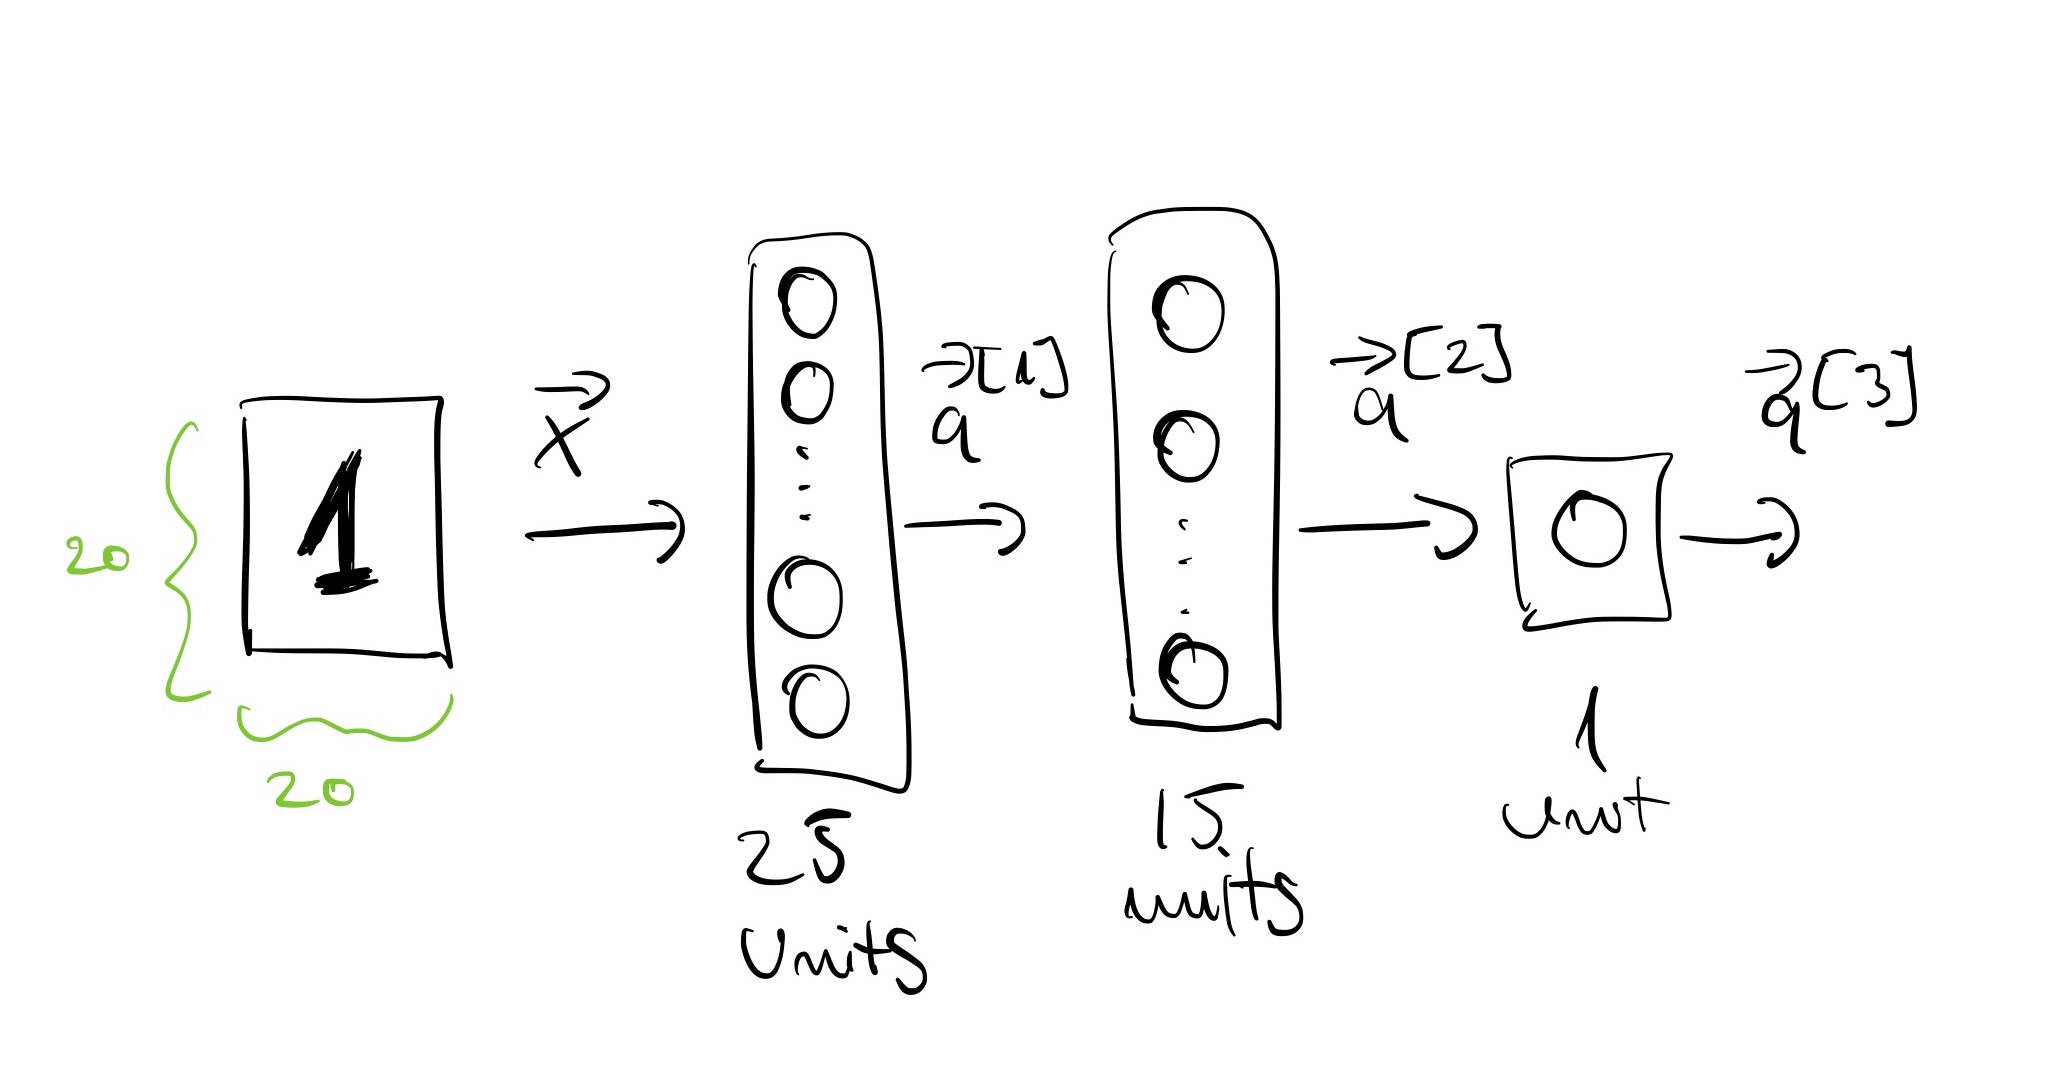 20
1
20
x
25
units
a [1]
15
units
a [2]
1
unit
a [3]